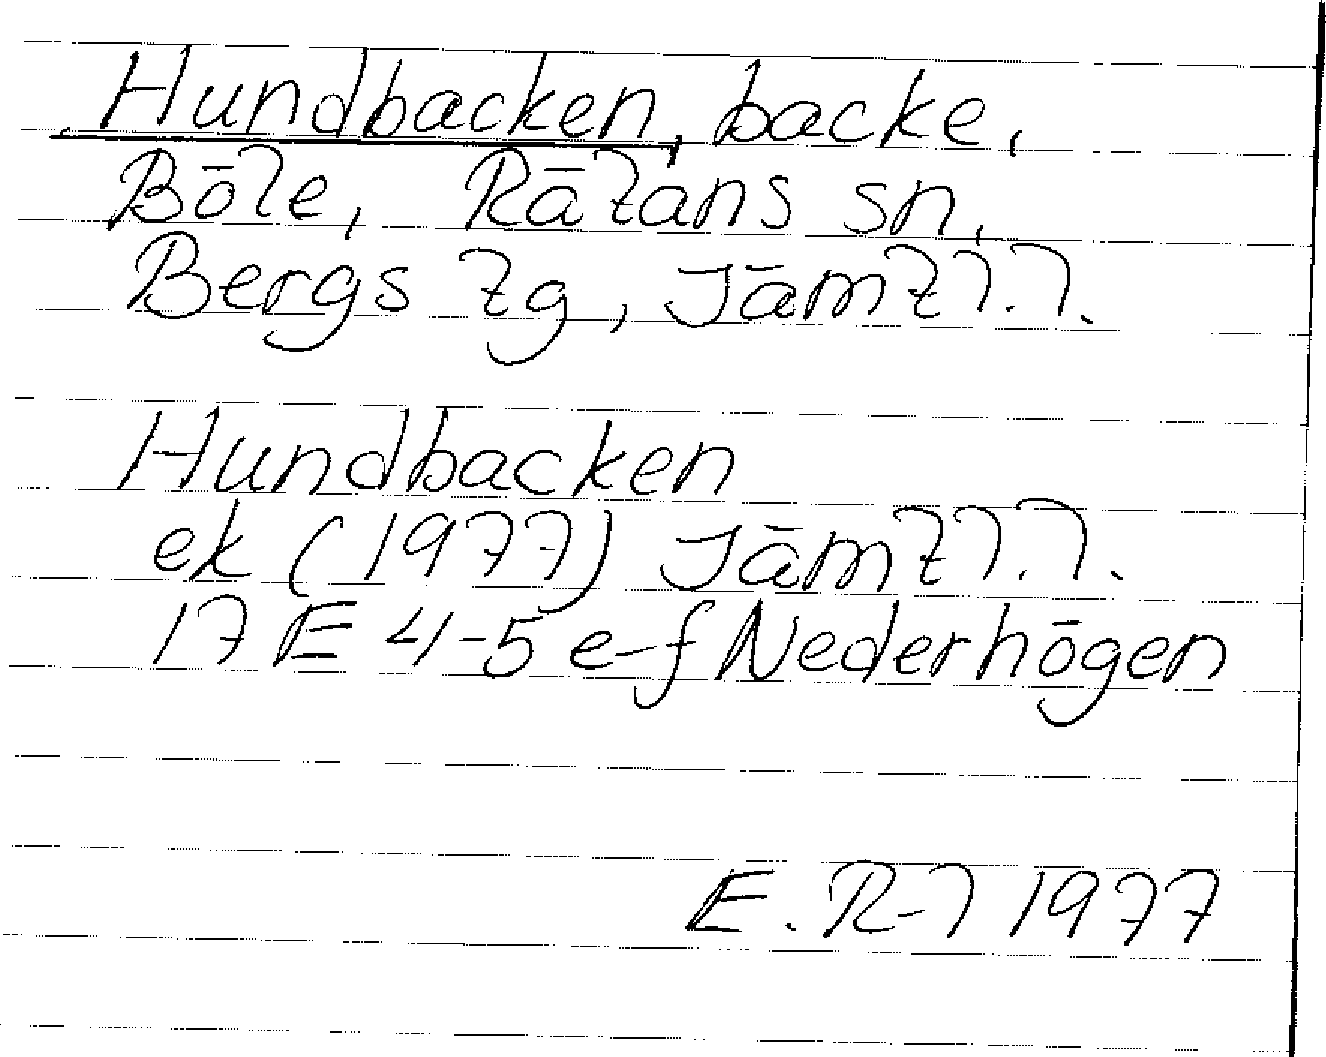 Hundbacken, backe,
Böle, Rätans sn,
Bergs tg, Jämtl.l.
Hundbacken
ek (1977) Jämtl.l.
17 E 4-5 e-f Nederhögen
E. R-l 1977